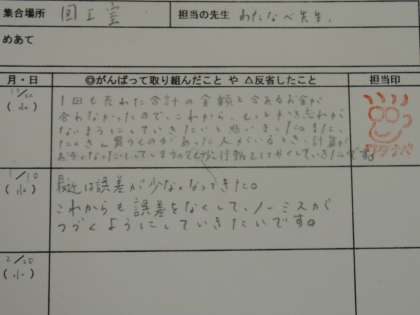 集合場所 図工室 担当の先生 わたなべ先生.
めあて
月・日 ◎がんばって取り組んだこと や △反省したこと 担当印
(水) 1回も売れた合計の金額と合あるお金が
合わなかったので、これから、もっと
ないようにしていきたいと思いました。また、
たくさん買うものがあった人がいるとき、計算が
ワタナベ
1/10 最近は誤差が少なくなってきた。
(水) これからも誤差をなくして、ノーミスが
つづくようにしていきたいです。
2/20
(水)